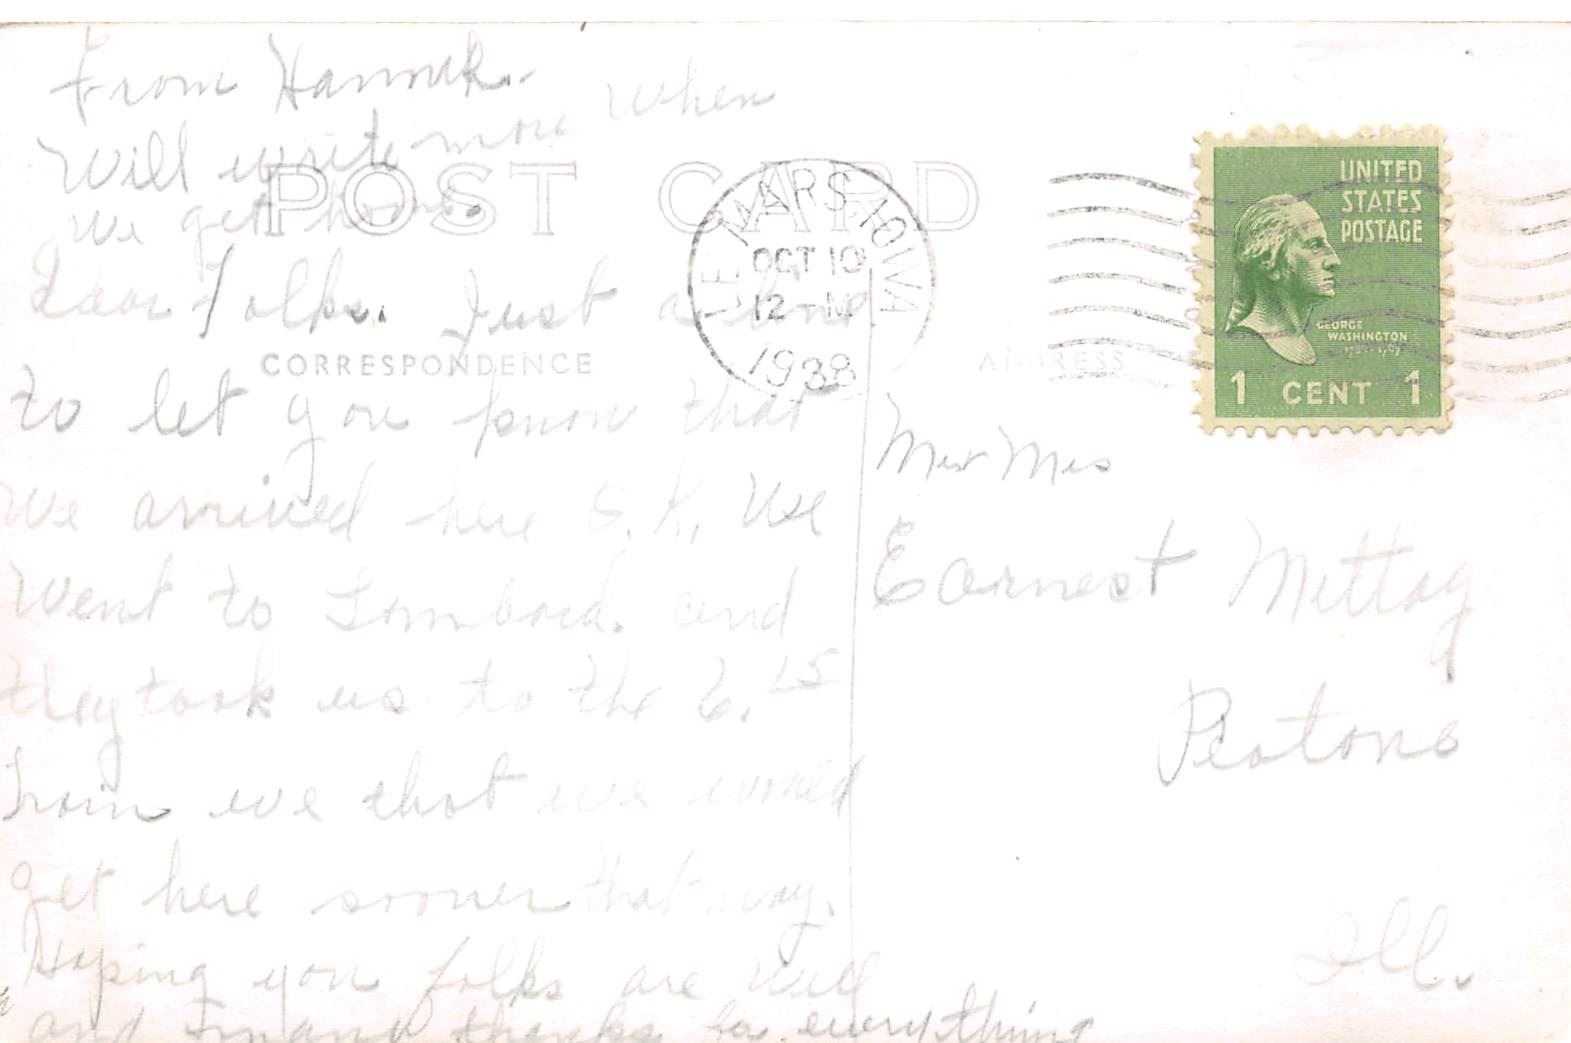 From Hannah.
Will write more when
we get home
POST CARD
LE MARS, IOWA
OCT 10
12 - M
1938
UNITED
STATES
POSTAGE
GEORGE
WASHINGTON
1 CENT 1
CORRESPONDENCE
ADDRESS
Dear Folks. Just a line
to let you know that
we arrived here O.K. We
went to Lombard. and
they took us to the 6.15
train we thot we would
get here sooner that way.
Hoping you folks are well
and thanks for everything
Mr Mrs
Earnest Mettag
Peotone
Ill.